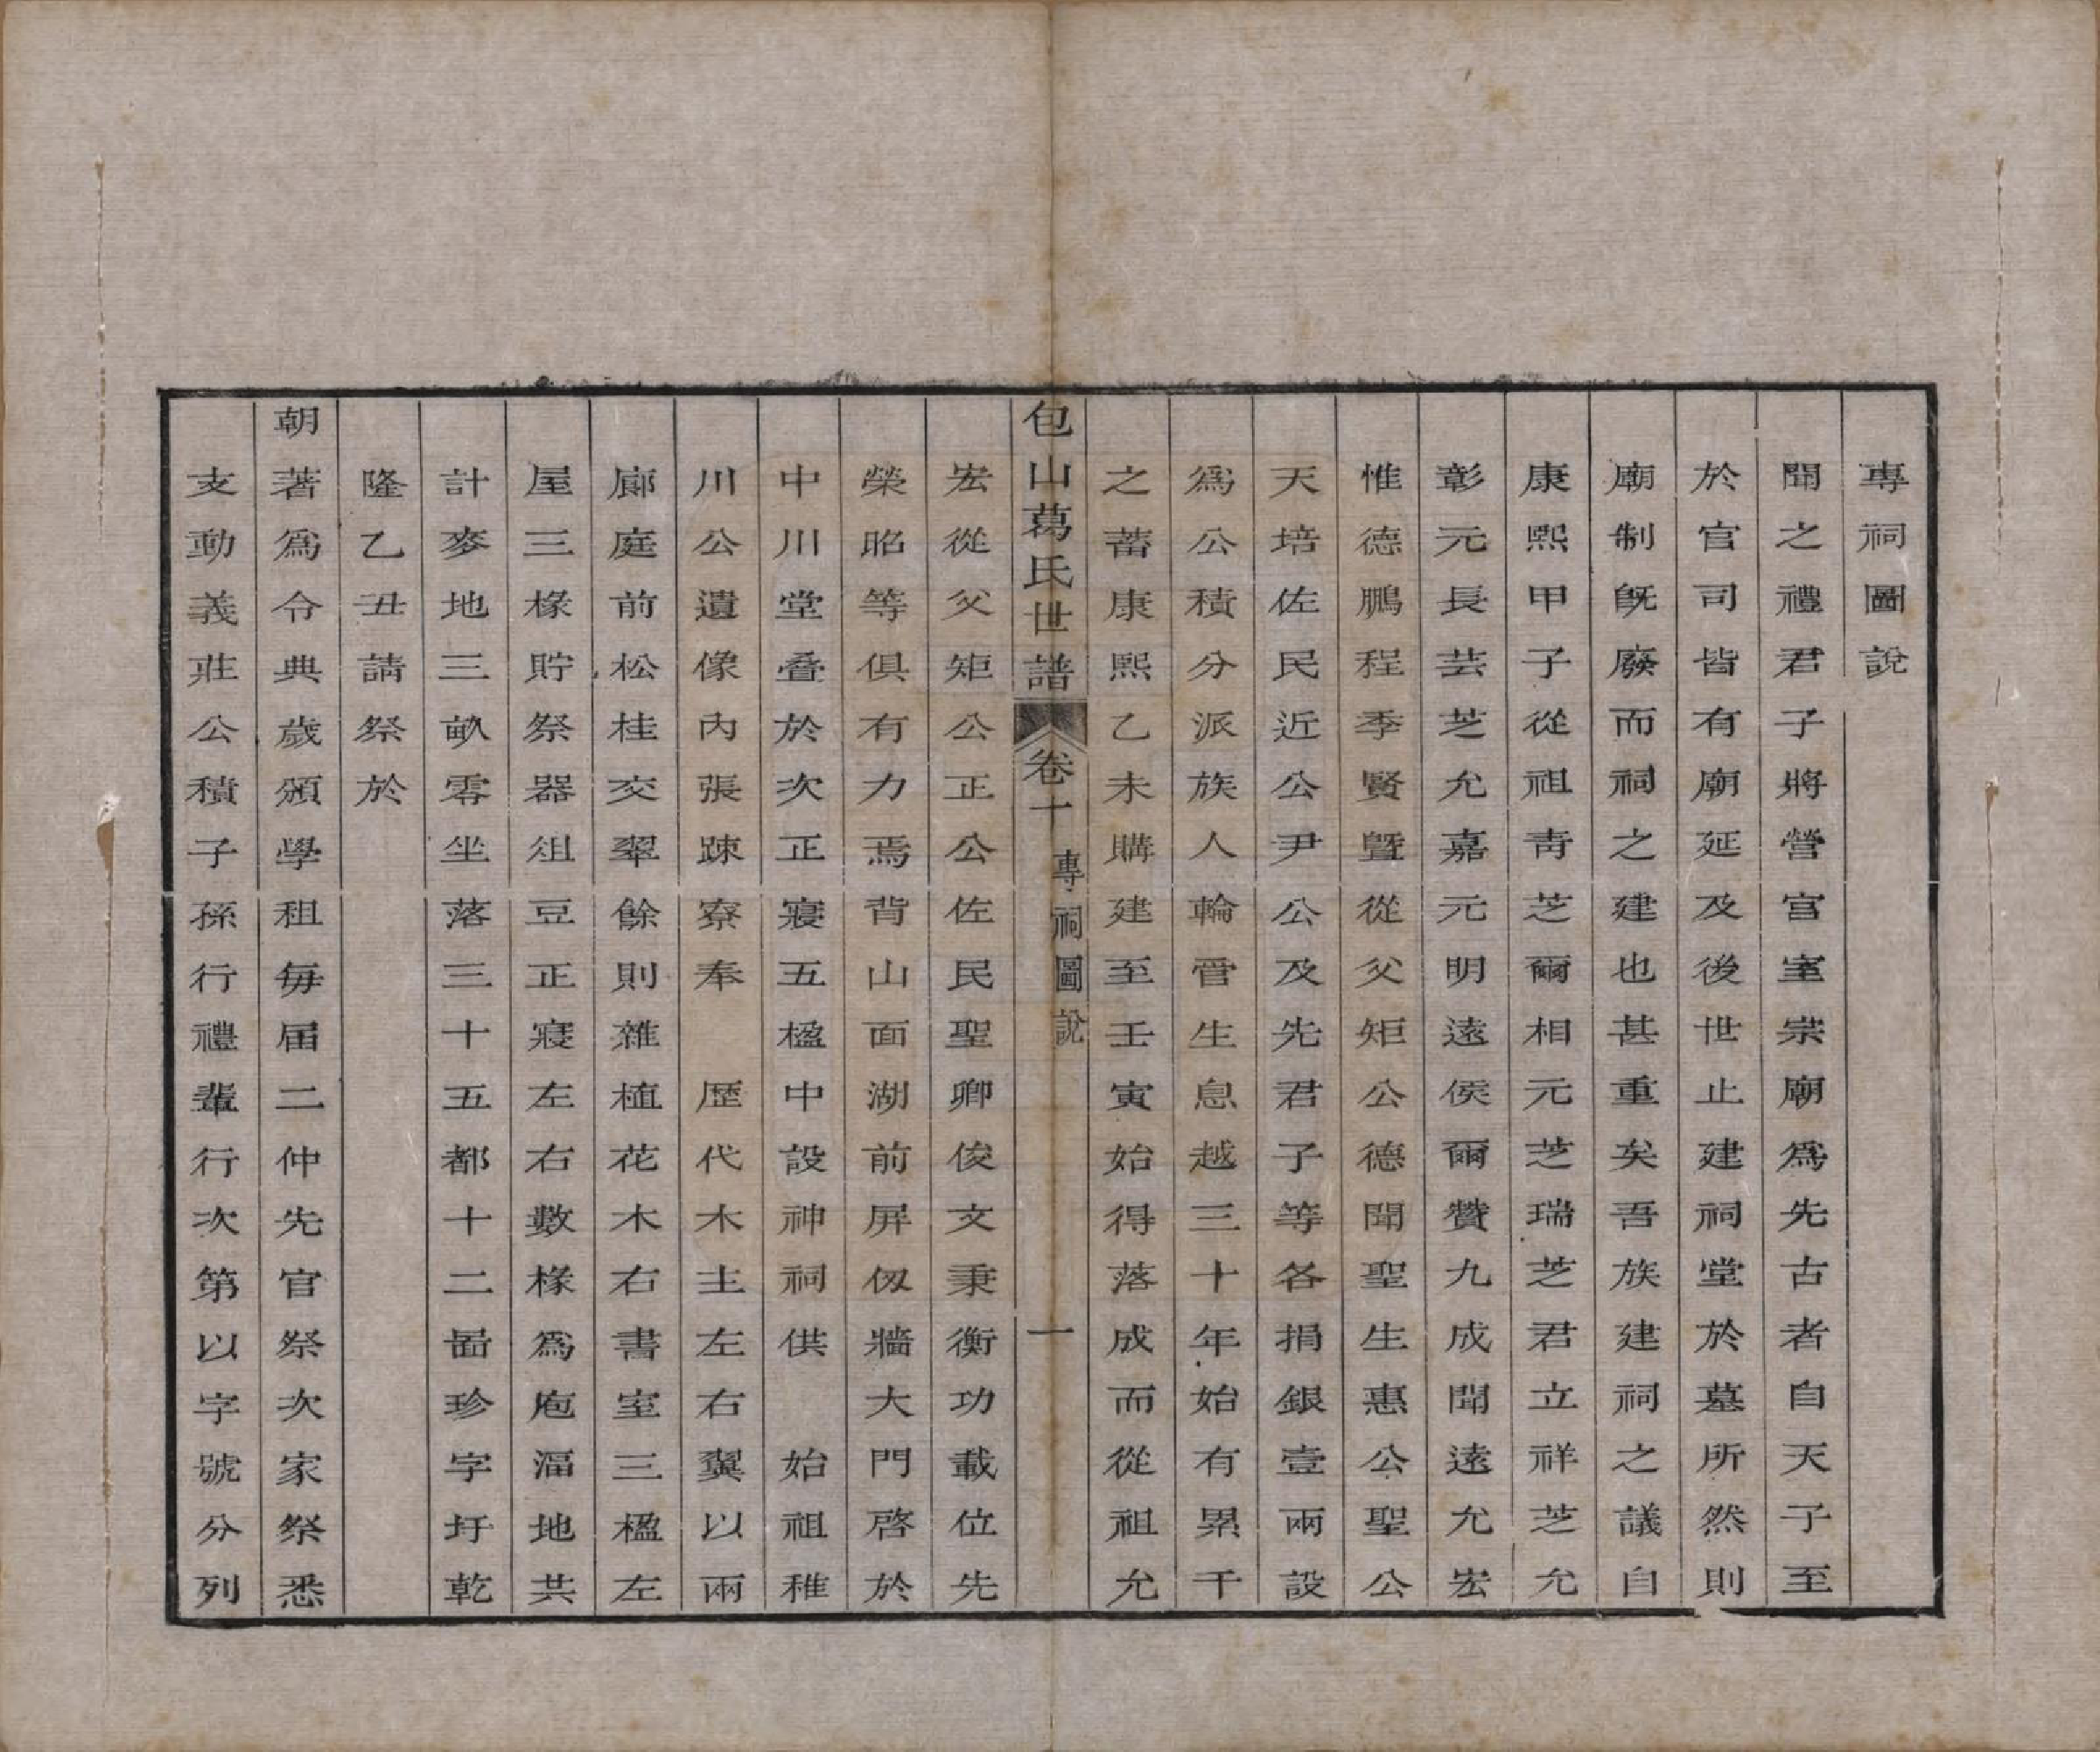 專祠圖說
聞之禮君子將營宮室宗廟爲先古者自天子至
於官司皆有廟延及後世止建祠堂於墓所然則
廟制旣廢而祠之建也甚重矣吾族建祠之議自
康熙甲子從祖靑芝爾相元芝瑞芝君立祥芝允
彰元長芸芝允嘉元明遠侯爾贊九成聞遠允宏
惟德鵬程季賢曁從父矩公德聞聖生惠公聖公
天培佐民近公尹公及先君子等各捐銀壹兩設
爲公積分派族人輪管生息越三十年始有累千
之蓄康熙乙未購建至壬寅始得落成而從祖允
包山葛氏世譜 卷十 專祠圖說 一
宏從父矩公正公佐民聖卿俊文秉衡功載位先
榮昭等俱有力焉背山面湖前屏伋牆大門啓於
中川堂叠於次正寢五楹中設神祠供 始祖稚
川公遺像內張疎寮奉 歷代木主左右翼以兩
廊庭前松桂交翠餘則雜植花木右書室三楹左
屋三椽貯祭器俎豆正寢左右數椽爲庖湢地共
計麥地三畝零坐落三十五都十二啚珍字圩乾
隆乙丑請祭於
朝著爲令典歲頒學租每届二仲先官祭次家祭悉
支動義莊公積子孫行禮輩行次第以字號分列